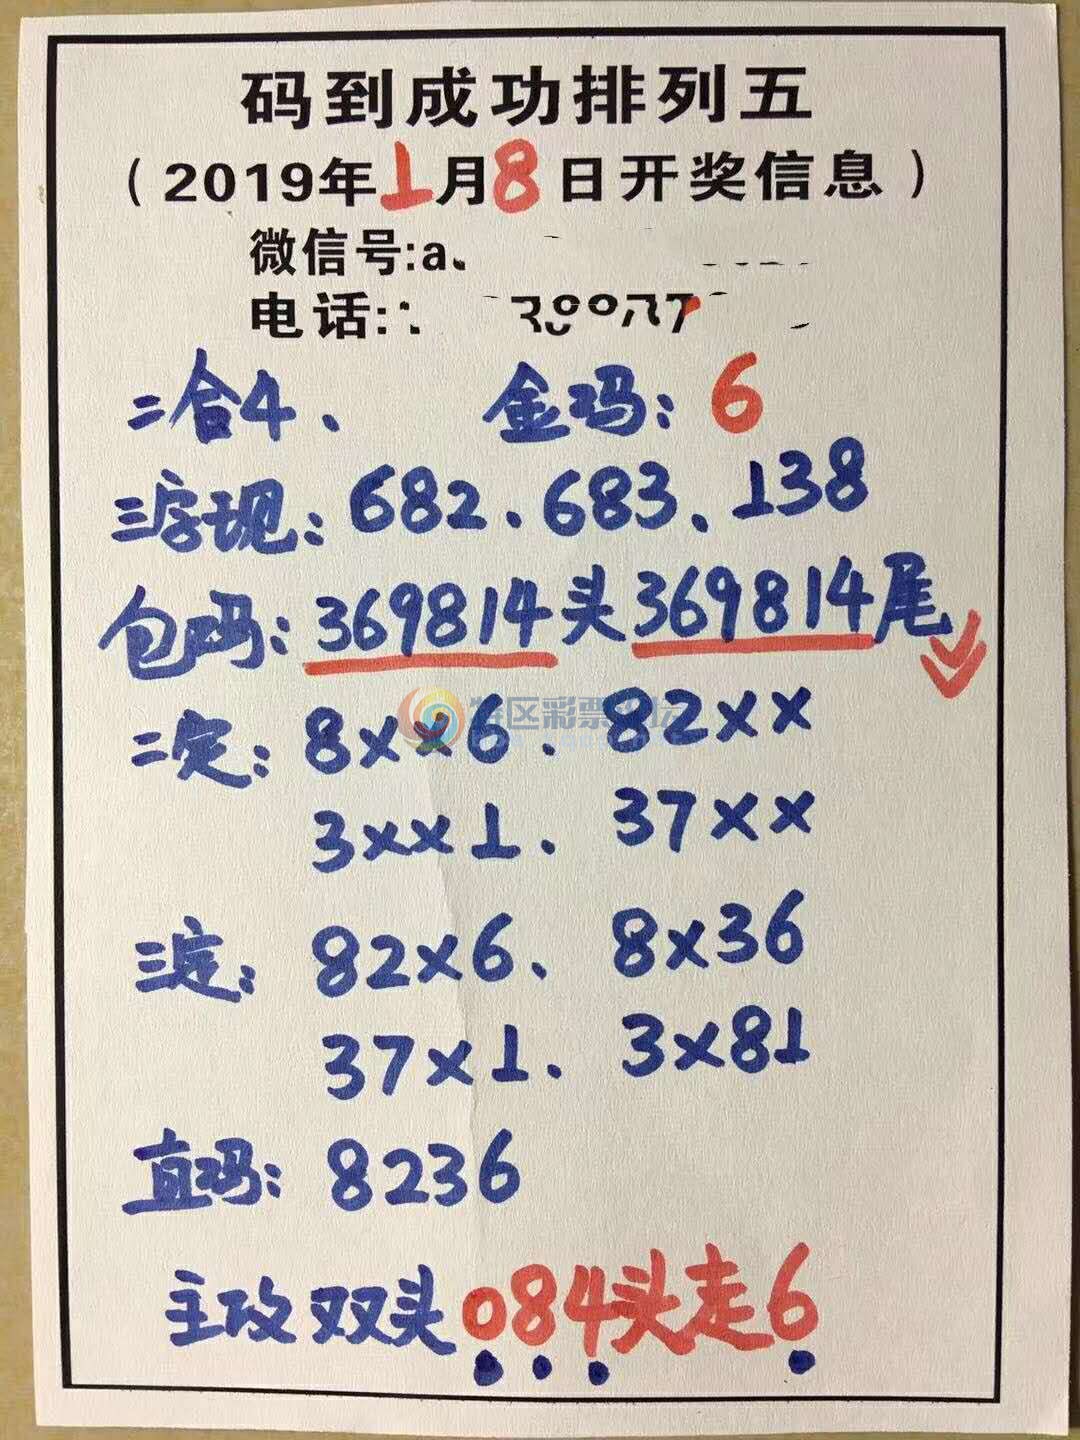 码到成功排列五
（2019年1月8日开奖信息）
微信号:a
电话:
二合4、 金码: 6
三字现: 682、683、138
包码: 369814头369814尾
特区彩票论坛
二定: 8××6、 82××
3××1、 37××
三定: 82×6、 8×36
37×1、 3×81
直码: 8236
主攻双头084头走6